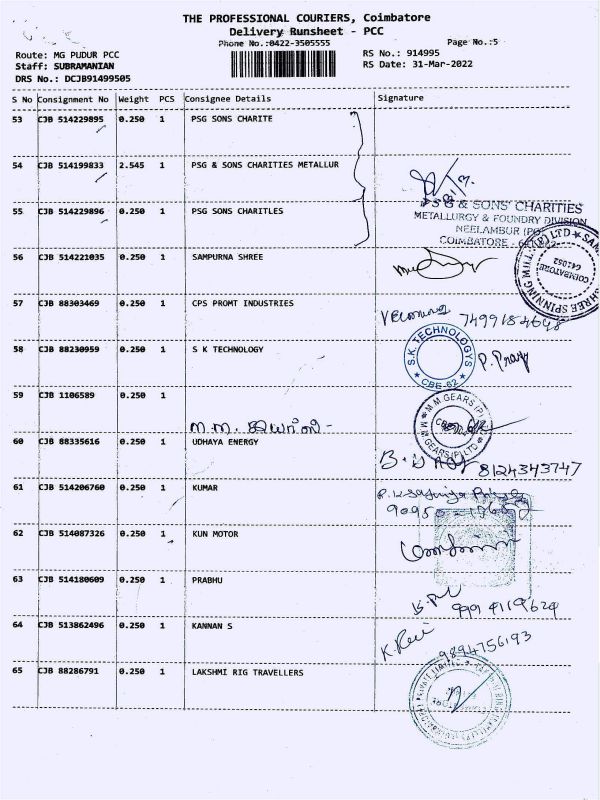 THE PROFESSIONAL COURIERS, Coimbatore
Delivery Runsheet - PCC
Phone No.:0422-3505555
Page No.:5
Route: MG PUDUR PCC
RS No.: 914995
Staff: SUBRAMANIAN
RS Date: 31-Mar-2022
DRS No.: DCJB91499505
S No Consignment No Weight PCS Consignee Details Signature
53 CJB 514229895 0.250 1 PSG SONS CHARITE
54 CJB 514199833 2.545 1 PSG & SONS CHARITIES METALLUR
55 CJB 514229896 0.250 1 PSG SONS CHARITLES
PSG & SONS' CHARITIES
METALLURGY & FOUNDRY DIVISION
NEELAMBUR (PO)
COIMBATORE
56 CJB 514221035 0.250 1 SAMPURNA SHREE
SHREE SPINNING MILL (P) LTD
COIMBATORE
641062
57 CJB 88303469 0.250 1 CPS PROMT INDUSTRIES
7499184648
58 CJB 88230959 0.250 1 S K TECHNOLOGY
S.K. TECHNOLOGYS
CBE-62
59 CJB 1106589 0.250 1
M.M. GEARS (P) LTD
60 CJB 88335616 0.250 1 UDHAYA ENERGY
8124343747
61 CJB 514206760 0.250 1 KUMAR
62 CJB 514087326 0.250 1 KUN MOTOR
63 CJB 514180609 0.250 1 PRABHU
9994119624
64 CJB 513862496 0.250 1 KANNAN S
9894756193
65 CJB 88286791 0.250 1 LAKSHMI RIG TRAVELLERS